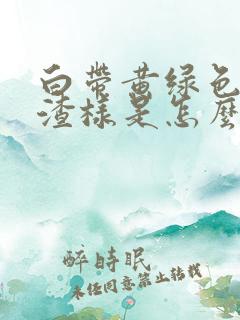 白带黄绿色
渣样是怎麼
醉時眠
未经同意禁止转载